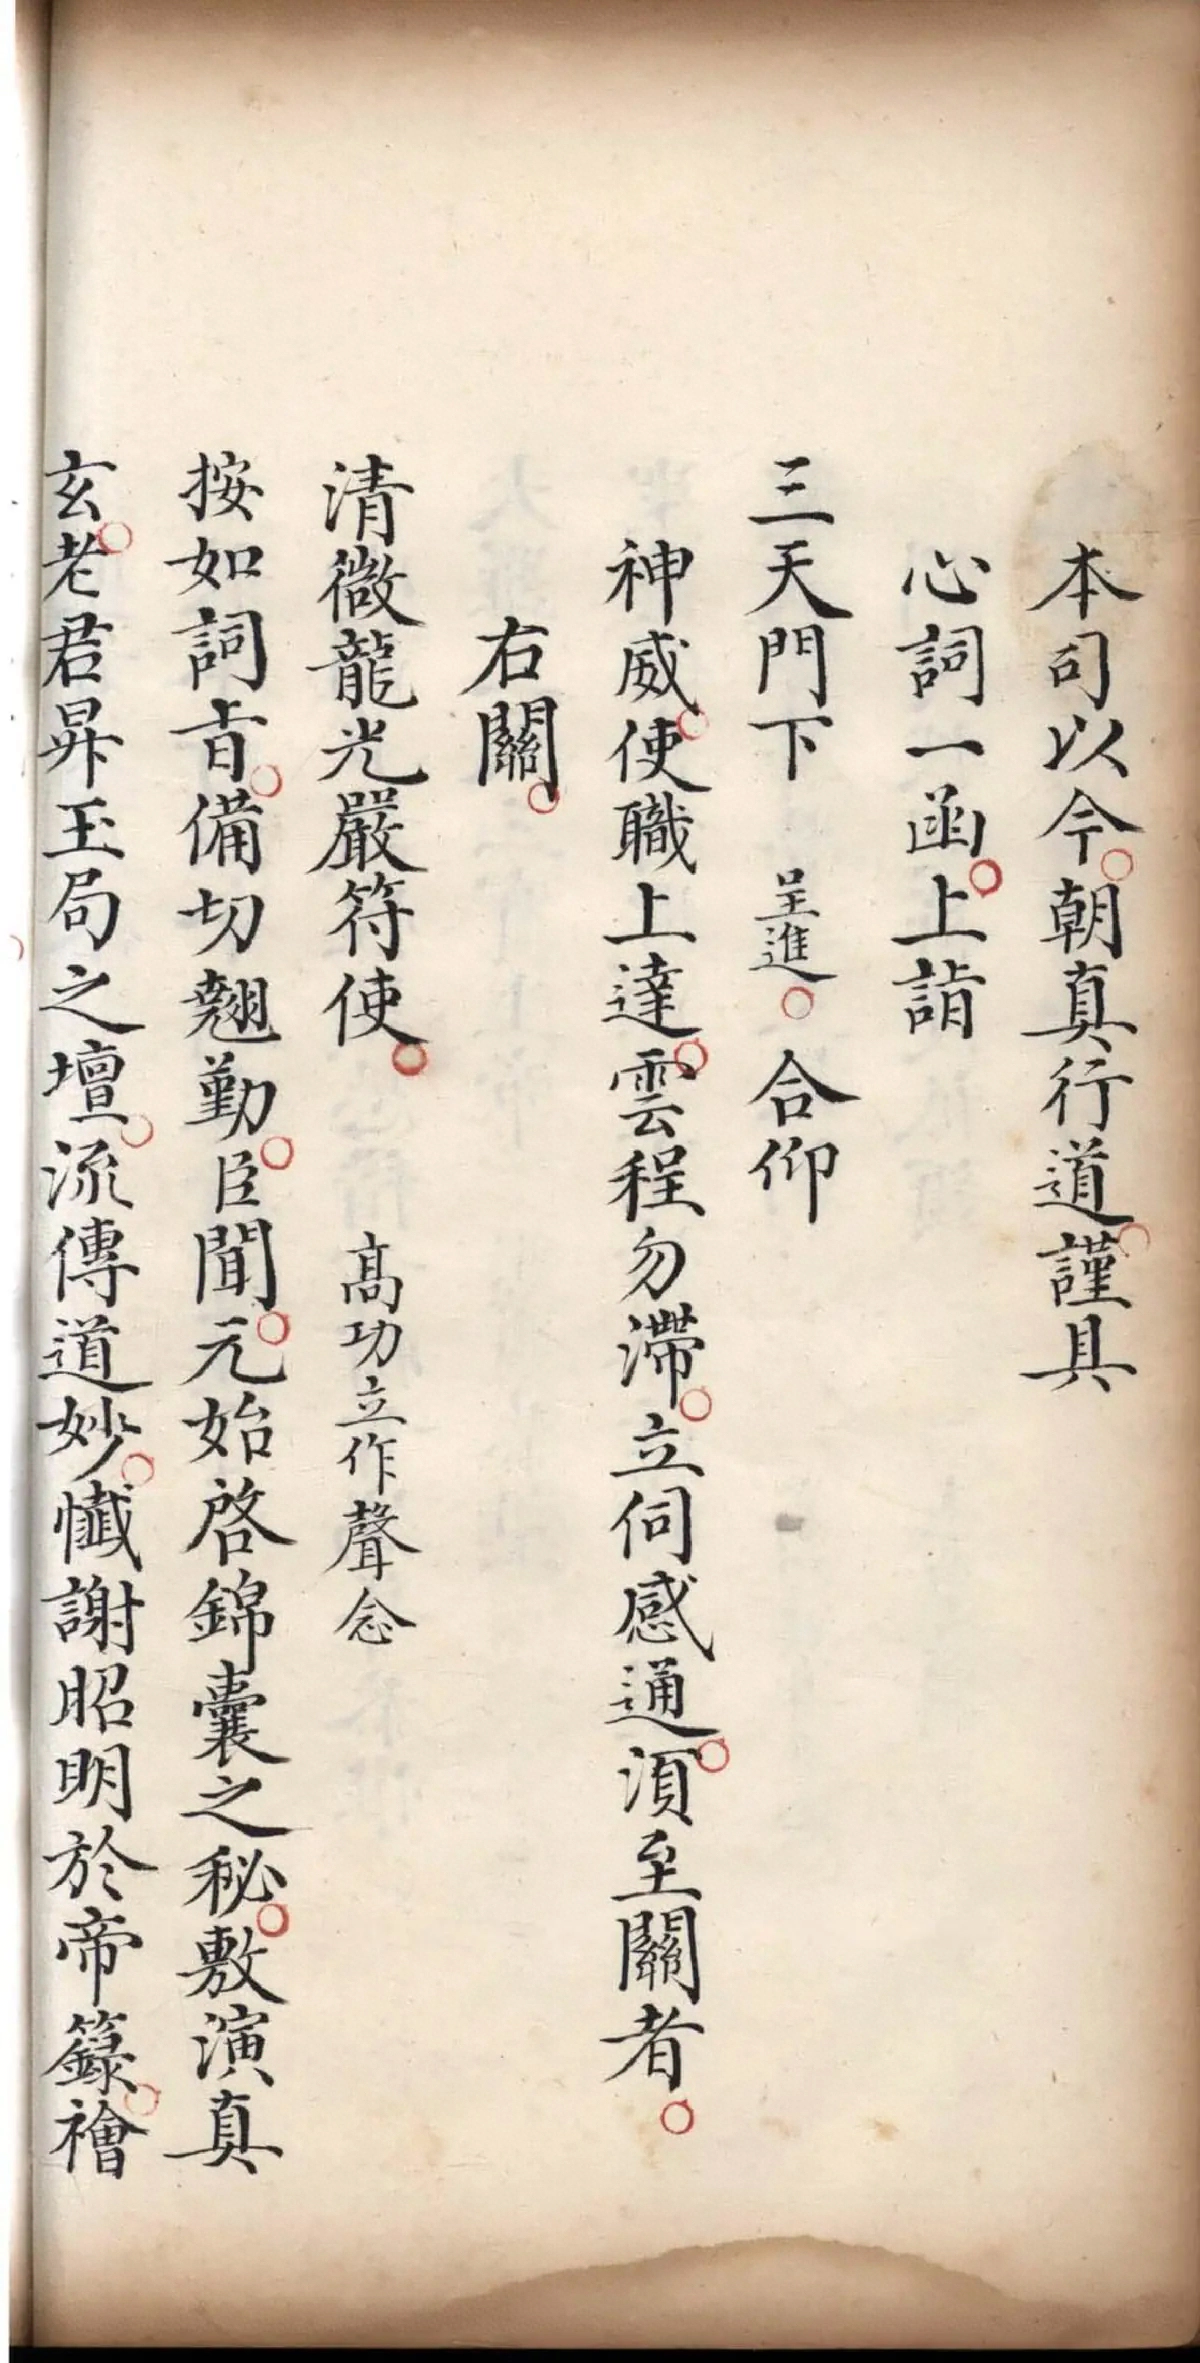 本司以今朝真行道謹具
心詞一函上詣
三天門下 呈進 合仰
神威使職上達雲程勿滯立伺感通湏至關者
右關
清微龍光嚴符使 高功立作聲念
按如詞旨備切翹勤臣聞元始啓錦囊之秘敷演真
玄老君昇玉局之壇流傳道妙懺謝昭明於帝籙禬